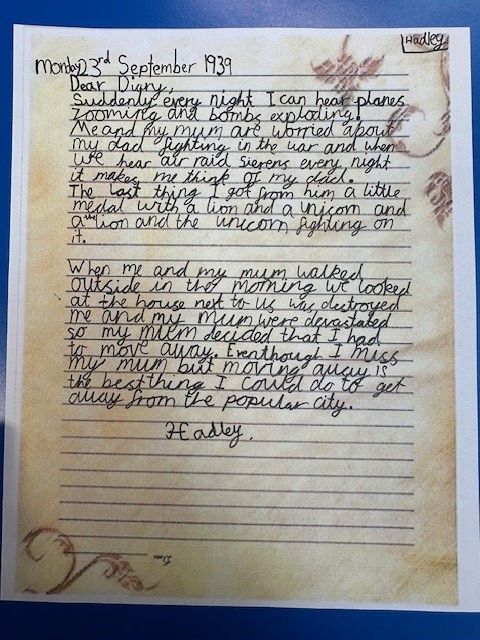 Hadley
Monday 23rd September 1939
Dear Diary,
Suddenly every night I can hear planes
zooming and bombs exploding.
Me and my mum are worried about
my dad fighting in the war and when
we hear air raid sierens every night
it makes me think of my dad.
The last thing I got from him a little
medal with a lion and a unicorn and
a the lion and the unicorn fighting on
it.
When me and my mum walked
outside in the morning we looked
at the house next to us was destroyed
me and my mum were devastated
so my mum decided that I had
to move away. Eventhough I miss
my mum but moving away is
the best thing I could do to get
away from the popular city.
Hadley.